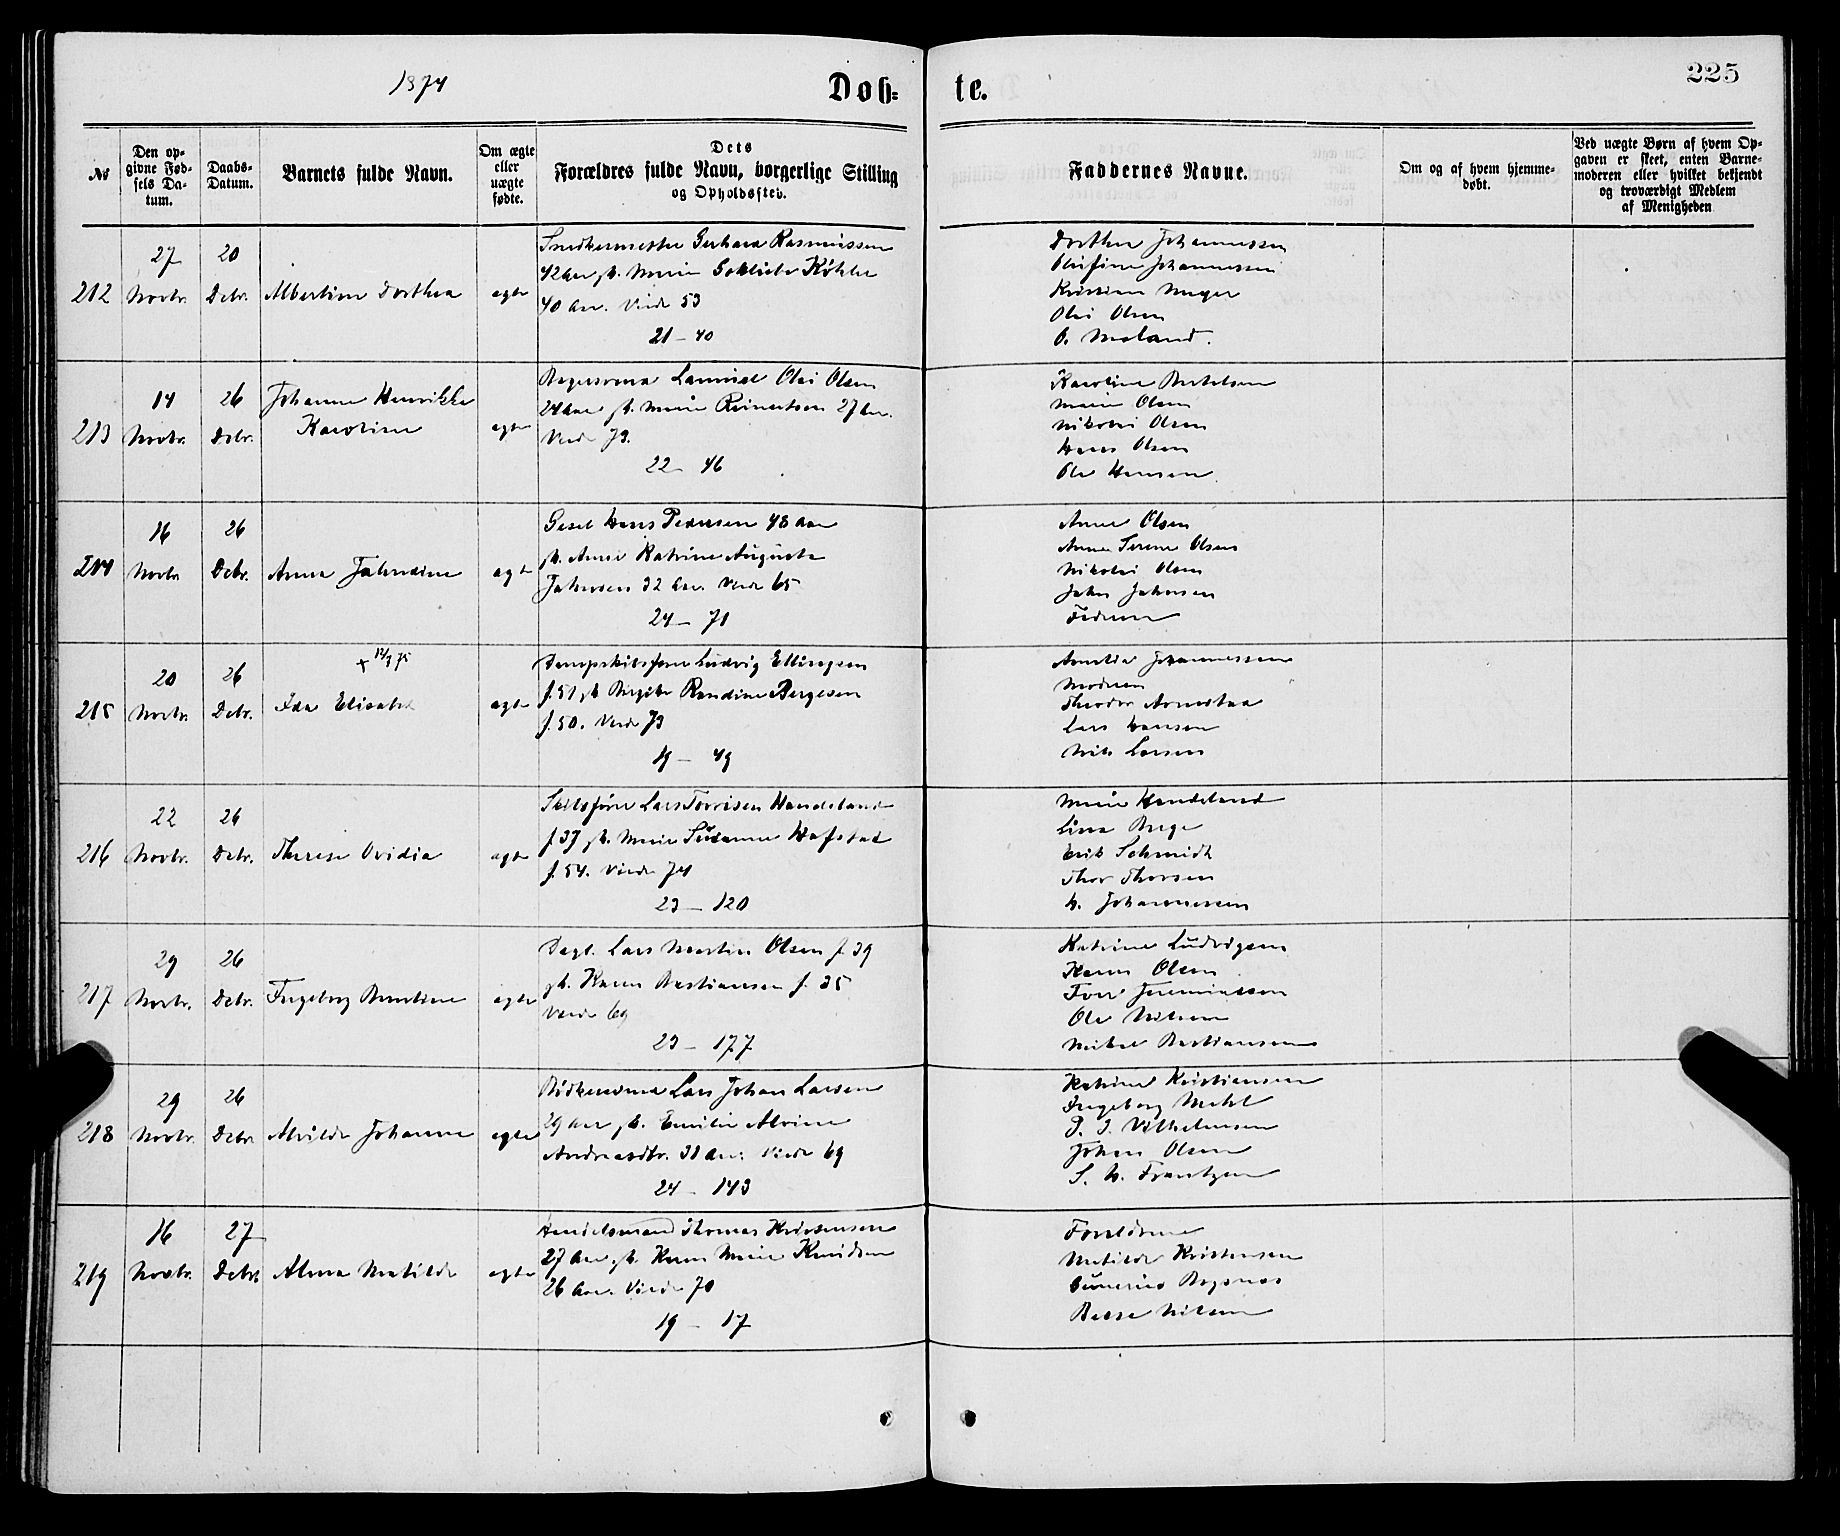 1874
Døb=
te.
225
№
Den op-
givne Fød-
sels Da-
tum.
Daabs-
Datum.
Barnets fulde Navn.
Om ægte
eller
uægte
fødte.
Dets
Forældres fulde Navn, borgerlige Stilling
og Opholdssted.
Faddernes Navne.
Om og af hvem hjemme-
døbt.
Ved uægte Børn af hvem Op-
gaven er skeet, enten Barne-
moderen eller hvilket bekjendt
og troværdigt Medlem
af Menigheden
212
27
Novbr.
20
Debr.
Albertine Dorthea
ægte
Snedkermester Gerhard Rasmussen
42 Aar, h. Marie Gotliebe Køhler
40 Aar. Viede 53
21 – 40
Dorthea Johannessen
Olufine Johannessen
Kristian Meyer
Olai Olsen
O. Moland.
213
14
Novbr.
26
Debr.
Johanne Henrikke
Karoline
ægte
Bagersvend Laurits Olai Olsen
24 Aar, h. Marie Reinertsen 27 Aar.
Viede 73.
22 – 46
Karoline Bertelsen
Marie Olsen
Nikolai Olsen
Hans Olsen
Ole Hansen
214
16
Novbr
26
Debr.
Anna Jahndine
ægte
Gesel Hans Pedersen 48 Aar
h. Anne Katrine Augusta
Jahnsen 32 Aar. Viede 65
24 – 71
Anne Olsen
Anne Serene Olsen
Nikolai Olsen
John Jahnsen
Faderen
215
20
Novbr.
26
Debr.
Ida Elisabet
ægte
Dampskibsfører Ludvig Ellingsen
f. 51 h. Birgitte Randine Børgesen
f. 50. Viede 73
19 – 49
Amalie Johannessen
Moderen
Theodor
Lars Hansen
Nils Larsen
216
22
Novbr.
26
Debr.
Therese Ovidia
ægte
Skibsfører Lars Torrisen Handeland
f. 37 h. Marie Susanne Hafstad
f. 54. Viede 74
23 – 120
Marie Handeland
Lina Berge
Erik Schmidt
Thor Thorsen
Johannessen
217
29
Novbr.
26
Debr.
Ingeborg Bertine
ægte
Dagl. Lars Martin Olsen f. 39
h. Karen Bastiansen f. 35
Viede 69
23 – 177
Katrine Ludvigsen
Karen Olsen
Iver Jeremiassen
Ole Nilsen
Mikal Bastiansen
218
29
Novbr.
26
Debr
Alvilde Johanne
ægte
Bødkersvend Lars Johan Larsen
29 Aar h. Emilie Alvine
Andreasdtr. 31 Aar. Viede 69
24 – 143
Katrine Kristiansen
Ingeborg Mehl
P. J. Vilhelmsen
Johan Olsen
Frantzen
219
16
Novbr.
27
Debr
Alma Matilde
ægte
Handelsmand Thomas Kristensen
27 Aar, h. Karen Marie Knudsen
26 Aar. Viede 70
19 – 17
Forældrene
Matilde Kristensen
Bygnes
Nilsen